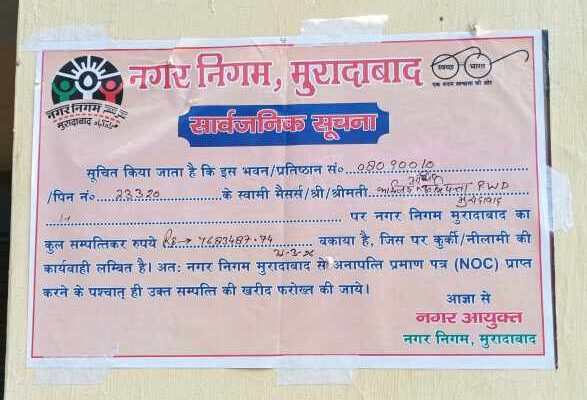 नगर निगम, मुरादाबाद
स्वच्छ भारत
एक कदम स्वच्छता की ओर
नगर निगम
मुरादाबाद
सार्वजनिक सूचना
सूचित किया जाता है कि इस भवन/प्रतिष्ठान सं०...08090010
/पिन नं०...23320...के स्वामी मैसर्स/श्री/श्रीमती PWD
मुरादाबाद
पर नगर निगम मुरादाबाद का
कुल सम्पत्तिकर रुपये Rs→ 7683487.74 बकाया है, जिस पर कुर्की/नीलामी की
कार्यवाही लम्बित है। अतः नगर निगम मुरादाबाद से अनापत्ति प्रमाण पत्र (NOC) प्राप्त
करने के पश्चात् ही उक्त सम्पत्ति की खरीद फरोख्त की जाये।
आज्ञा से
नगर आयुक्त
नगर निगम, मुरादाबाद